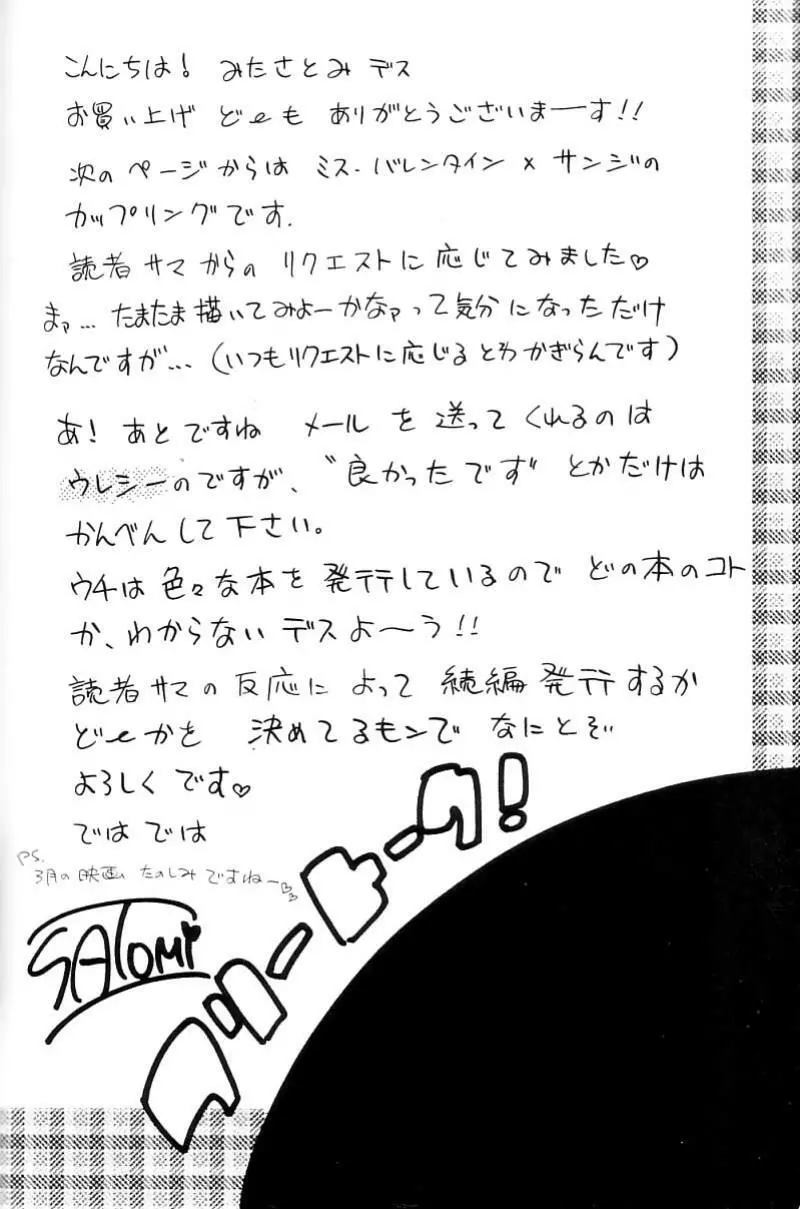 こんにちは! みたさとみ デス
お買い上げ どーも ありがとうございまーす!!
次のページからは ミス・バレンタイン × サンジの
カップリングです.
読者サマからの リクエストに応じてみました♡
まァ… たまたま描いてみよーかなァって気分になっただけ
なんですが… (いつもリクエストに応じるとわかぎらんです)
あ! あとですね メールを送ってくれるのは
ウレシーのですが、〝良かったです〟とかだけは
かんべんして下さい。
ウチは色々な本を発行しているので どの本のコト
か、わからないデスよ〜う!!
読者サマの反応によって 続編発行するか
どーかを 決めてるモンで なにとぞ
よろしくです♡
ではでは
PS.
3月の映画 たのしみですねー♡♡
SATOMI♥
フリートーク!